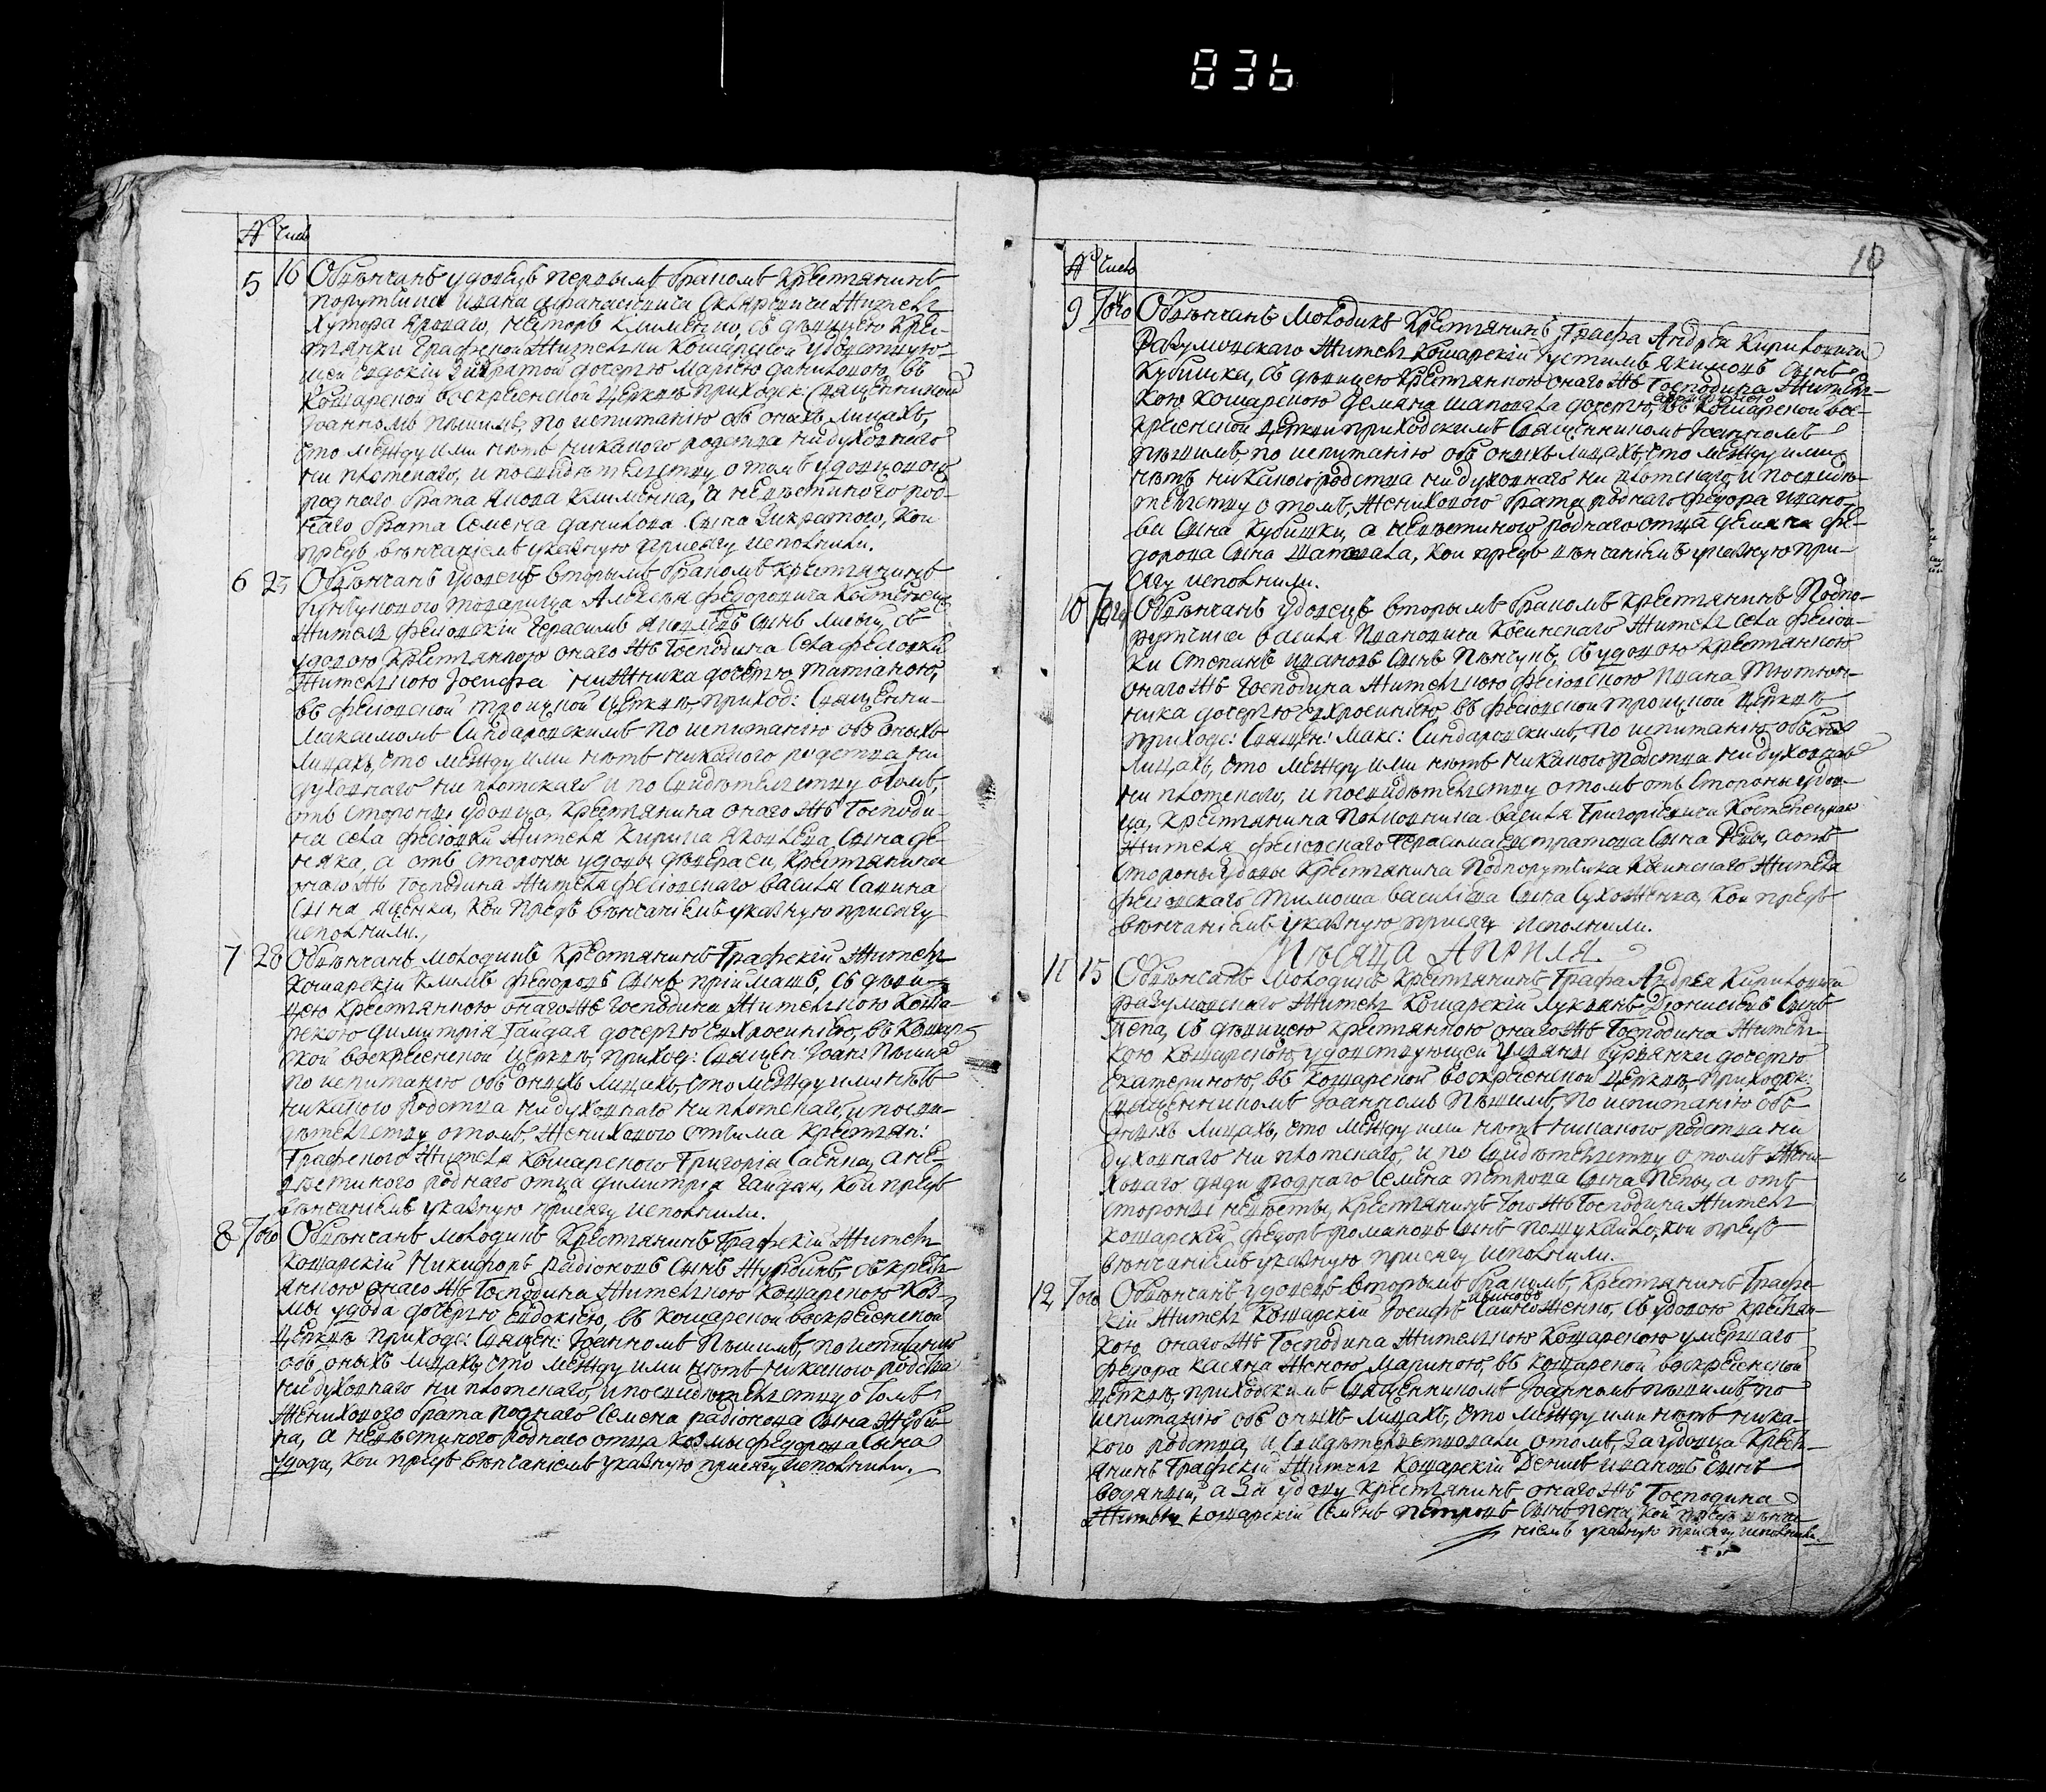 836
№ Число
5 16 Обвѣнчанъ удовецъ первымъ бракомъ крестянинъ
порутчика Ивана Афанасиевича Скляревича житель
хутора Ярового, Несторъ Клименко, съ дѣвицею крес-
тянки графской жителки кошарской удовствую-
щей Евдокіи дочерю Мариею Даниловою, въ
кошарской воскресенской церквѣ приходск: священникомъ
Іоанномъ Пѣшимъ, по испитанію объ оныхъ лицахъ,
что между ими нѣтъ никакого родства ни духовнаго
ни плотскаго, и по свидѣтелству о томъ удовцового
роднаго брата Якова Клименка, а невѣстиного род-
наго брата Семена Данилова сына, кои
предъ вѣнчаніемъ указную присягу исполнили.
6 27 Обвѣнчанъ удовецъ вторымъ бракомъ крестянинъ
бунчукового товарища Алексѣя Федоровича Костенецк:
житель фесіовскій Герасимъ Яковлевъ сынъ съ
удовою крестянкою онаго жъ господина села Фесіовки
жителкою Іосифа дочерю Татіаною,
въ фесіовской троицкой церквѣ приход: священни-
Максимомъ Синдаровскимъ по испитанію объ оныхъ
лицахъ, что между ими нѣтъ никакого родства ни
духовнаго ни плотскаго и по свидѣтелству о томъ,
отъ стороны удовца, крестянина онаго жъ господи-
на села Фесіовки жителя Кирила Яковлева сына Де-
няка, а отъ стороны удовы крестянина
онаго жъ господина жителя фесіовскаго Василя Савина
сына Яценка, кои предъ вѣнчаніемъ указную присягу
исполнили.
7 28 Обвѣнчанъ молодикъ крестянинъ графскій житель
кошарскій Климъ Федоровъ сынъ Приймашъ, съ дѣви-
цею крестянкою онаго жъ господина жителкою коша-
рскою Димитрія Гайдая дочерю Евхросиніею, въ кошар-
ской воскресенской церквѣ, приход: священ: Іоан: Пѣшимъ
по испитанію объ оныхъ лицахъ, что между ими нѣтъ
никакого родства ни духовнаго ни плотскаго, и по сви-
дѣтелству о томъ, женихового отчима крестян:
графского жителя кошарского Григорія Саенка, а не-
вѣстиного роднаго отца Димитрія Гайдая, кои предъ
вѣнчаніемъ указную присягу исполнили.
8 Того Обвѣнчанъ молодикъ крестянинъ графскій житель
кошарскій Никифоръ Радіоновъ сынъ съ крест-
янкою онаго жъ господина жителкою кошарскою Коз-
мы Удода дочерю Евдокіею, въ кошарской воскресенской
церквѣ приходс: священ: Іоанномъ Пѣшимъ, по испитанію
объ оныхъ лицахъ, что между ими нѣтъ никакого родства
ни духовнаго ни плотскаго, и по свидѣтелству о томъ
женихового брата роднаго Семена Радіонова сына
на, а невѣстиного роднаго отца Козмы Федорова сына
Удода, кои предъ вѣнчаніемъ указную присягу исполнили.
10
№ Число
9 Того Обвѣнчанъ молодикъ крестянинъ графа Андрея Кириловича
Разумовскаго житель кошарскій Устимъ Якимовъ сынъ
Кубишка, съ дѣвицею крестянкою онаго жъ господина жител-
кою кошарскою Демяна Шаповала дочерю, въ кошарской вос-
кресенской церкви приходскимъ священникомъ Іоанномъ
Пѣшимъ по испитанію объ оныхъ лицахъ, что между ими
нѣтъ никакого родства ни духовнаго ни плотскаго, и по свидѣ-
телству о томъ, женихового брата роднаго Федора Ивано-
ва сына Кубишки, а невѣстиного роднаго отца Демяна Фе-
дорова сына Шаповала, кои предъ вѣнчаніемъ указную при-
сягу исполнили.
10 Того Обвѣнчанъ удовецъ вторымъ бракомъ крестянинъ подпо-
рутчика Василя Ивановича Ксенскаго житель села Фесіов-
ки Степанъ Ивановъ сынъ съ удовою крестянкою
онаго жъ господина жителкою фесіовскою Ивана Тютюн-
ника дочерю Евхросиніею, въ фесіовской троицкой церквѣ
приходс: священ: Макс: Синдаровскимъ, по испитанію объ оныхъ
лицахъ, что между ими нѣтъ никакого родства ни духовнаго
ни плотскаго, и по свидѣтелству о томъ отъ стороны удов-
ца, крестянина полковника Василя Григориевича Костенецкаго
жителя фесіовскаго Герасима Евстратова сына а отъ
стороны удовы крестянина подпорутчика Ксенскаго жителя
фесіовскаго Тимоша Василіева сына Сухоженка, кои предъ
вѣнчаніемъ указную присягу исполнили.
Мѣсяца Априля.
11 15 Обвѣнчанъ молодикъ крестянинъ графа Андрея Кириловича
Разумовскаго житель кошарскій Лукіянъ Діонисіевъ сынъ
Пепа, съ дѣвицею крестянкою онаго жъ господина жител-
кою кошарскою, удовствующей Уляны дочерю
Екатериною, въ кошарской воскресенской церквѣ приходск:
священникомъ Іоанномъ Пѣшимъ, по испитанію объ
оныхъ лицахъ, что между ими нѣтъ никакого родства ни
духовнаго ни плотскаго, и по свидѣтелству о томъ жени-
хового дяди роднаго Семена Петрова сына Пепы, а отъ
стороны невѣсты, крестянинъ того жъ господина житель
кошарскій Федоръ Романовъ сынъ Пошукайло, кои предъ
вѣнчаніемъ указную присягу исполнили.
12 Того Обвѣнчанъ удовецъ вторымъ бракомъ, крестянинъ графс-
кій житель кошарскій Іосифъ съ удовою крестян-
кою, онаго жъ господина жителкою кошарскою умершаго
Федора Касяна женою Мариною, въ кошарской воскресенской
церквѣ, приходскимъ священникомъ Іоанномъ Пѣшимъ, по
испитанію объ оныхъ лицахъ, что между ими нѣтъ ника-
кого родства, и свидѣтелствовали о томъ, за удовца крест-
янинъ графскій житель кошарскій Денисъ Ивановъ сынъ
а за удову крестянинъ онаго жъ господина
житель кошарскій Семенъ Петровъ сынъ Пепа, кои предъ вѣнча-
ніемъ указную присягу исполнили.